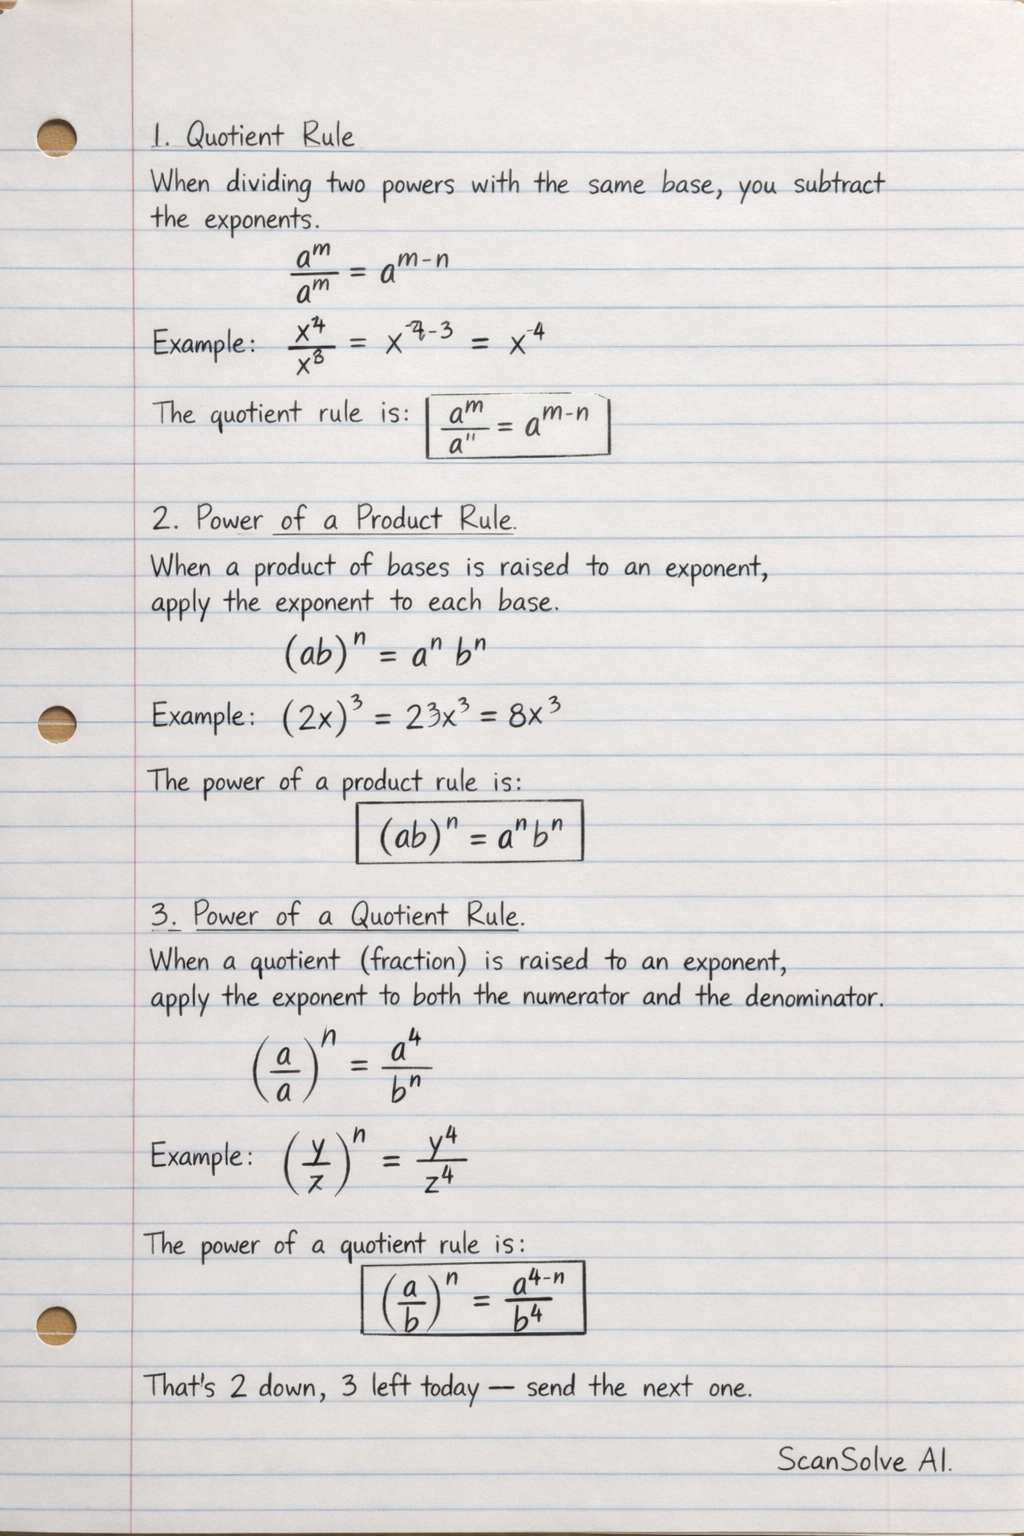 1. Quotient Rule
When dividing two powers with the same base, you subtract
the exponents.
a^m / a^m = a^(m-n)
Example: x^4 / x^3 = x^(-4-3) = x^(-4)
The quotient rule is: a^m / a^'' = a^(m-n)
2. Power of a Product Rule.
When a product of bases is raised to an exponent,
apply the exponent to each base.
(ab)^n = a^n b^n
Example: (2x)^3 = 23x^3 = 8x^3
The power of a product rule is:
(ab)^n = a^n b^n
3. Power of a Quotient Rule.
When a quotient (fraction) is raised to an exponent,
apply the exponent to both the numerator and the denominator.
(a/a)^n = a^4 / b^n
Example: (y/z)^n = y^4 / z^4
The power of a quotient rule is:
(a/b)^n = a^(4-n) / b^4
That's 2 down, 3 left today — send the next one.
ScanSolve AI.